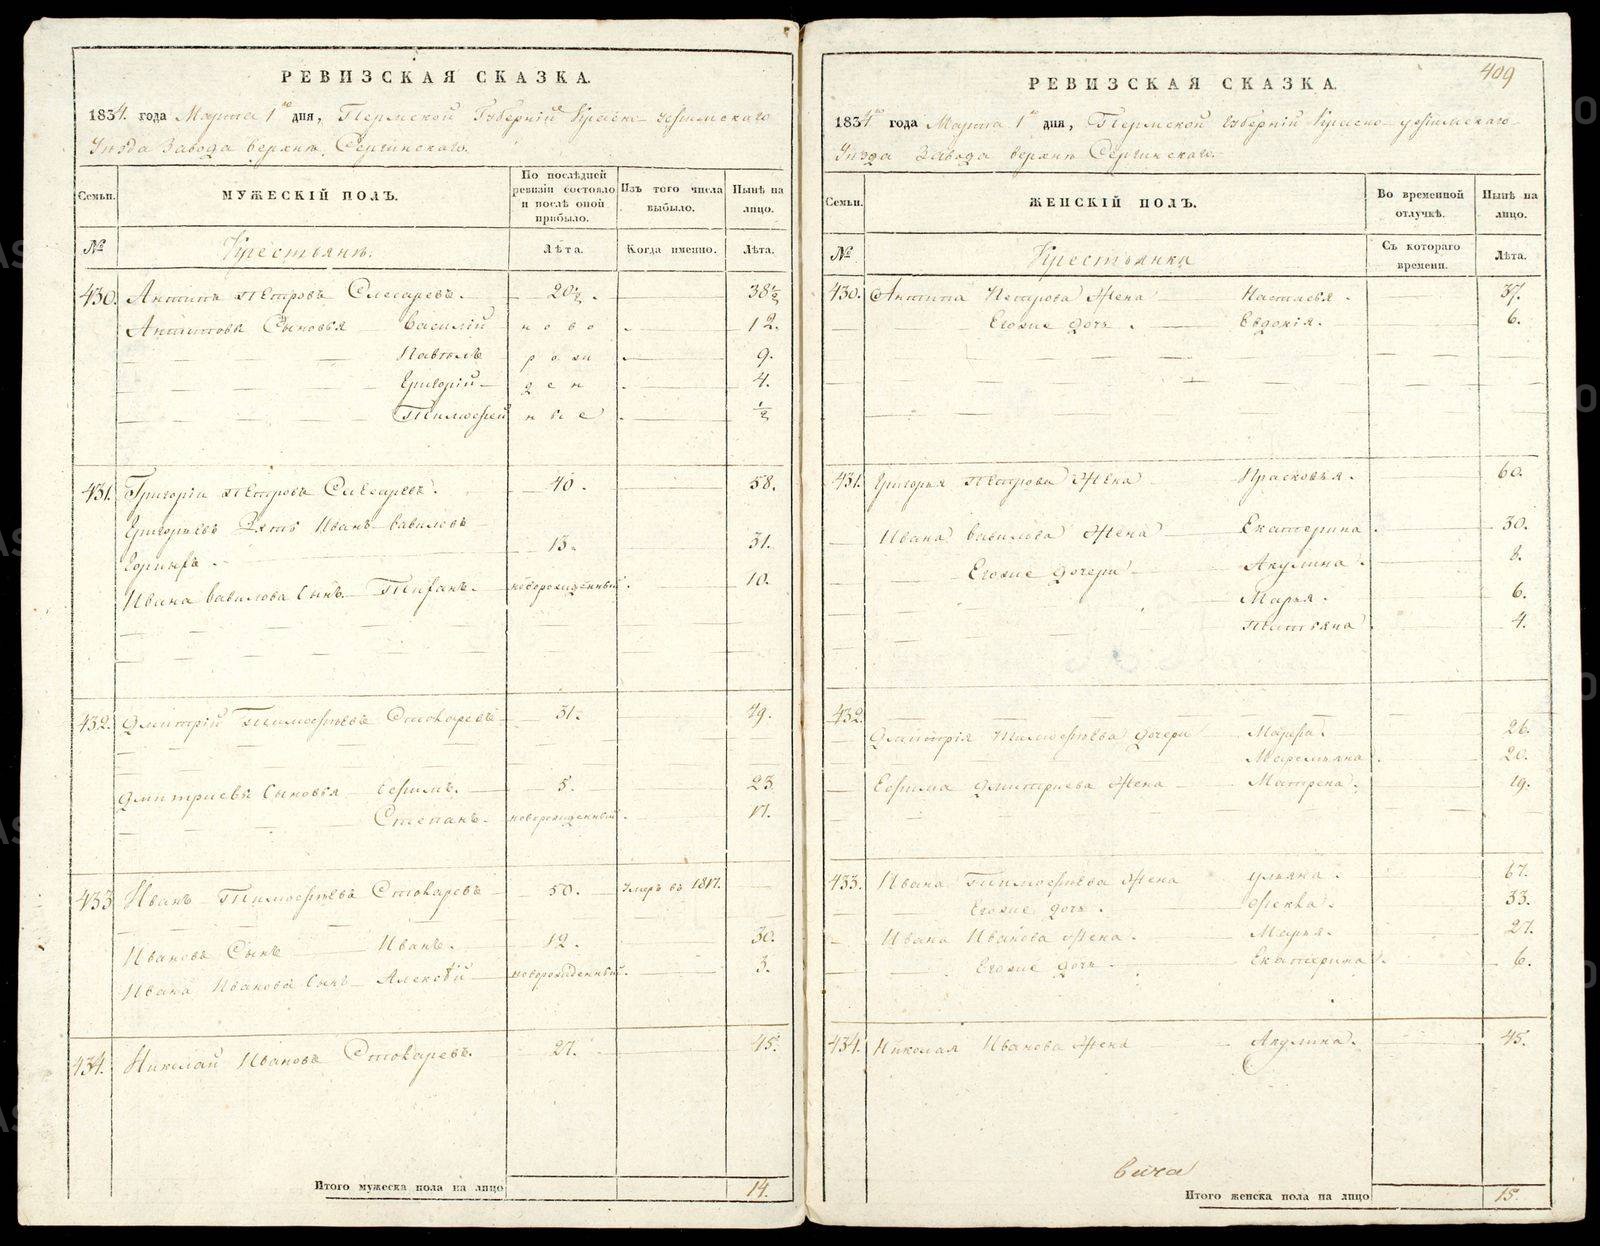 РЕВИЗСКАЯ СКАЗКА.
1834. года Марта 1го дня, Пермской Губернiи Красно-уфимскаго
Уѣзда Завода Верхне Сергинскаго.
Семьи. МУЖЕСКIЙ ПОЛЪ. По послѣдней ревизiи состояло и послѣ оной прибыло. Изъ того числа выбыло. Нынѣ на лицо.
№ Крестьянъ. Лѣта. Когда именно. Лѣта.
430. Антипъ Петровъ Слесаревъ. 20½. 38½
Антиповы Сыновья Василiй ново 12.
Павтелъ рож 9.
Григорiй ден 4.
Тимофей ные ½
431. Григорiй Петровъ Слесаревъ. 40. 58.
Григорьевъ Зять Иванъ Вавиловъ
13. 31.
Ивана Вавилова Сынъ Тифанъ. новорожденный. 10.
432. Дмитрiй Тимофѣевъ Стокаревъ 31. 49.
Дмитриевы Сыновья Ефимъ. 5. 23.
Степанъ. новорожденный. 17.
433 Иванъ Тимофѣевъ Стокаревъ 50. Умеръ въ 1817.
Ивановъ Сынъ Иванъ. 12. 30.
Ивана Иванова Сынъ Алексѣй новорожденный. 3.
434. Николай Ивановъ Стокаревъ. 27. 45.
Итого мужеска пола на лицо 14.
409
РЕВИЗСКАЯ СКАЗКА.
1834го года Марта 1го дня, Пермской Губернiи Красно-уфимскаго
Уѣзда Завода Верхне Сергинскаго.
Семьи. ЖЕНСКIЙ ПОЛЪ. Во временной отлучкѣ. Нынѣ на лицо.
№ Крестьянки Съ котораго времени. Лѣта.
430. Антипа Петрова Жена Настасья. 37.
Егоже дочь. Евдокiя. 6.
431. Григорья Петрова Жена Прасковья. 60.
Ивана Вавилова Жена Екатерина. 30.
Егоже дочери Акулина. 8.
Марья. 6.
Татьяна 4.
432.
Дмитрiя Тимофѣева дочери Марфа. 26.
Маремьяна. 20.
Ефима Дмитриева Жена Матрена. 19.
433. Ивана Тимофѣева Жена Ульяна. 67.
Егоже дочь. Фекла. 33.
Ивана Иванова Жена. Марья. 27.
Егоже дочь. Екатерина. 6.
434. Николая Иванова Жена Акулина. 45.
Итого женска пола на лицо 15.